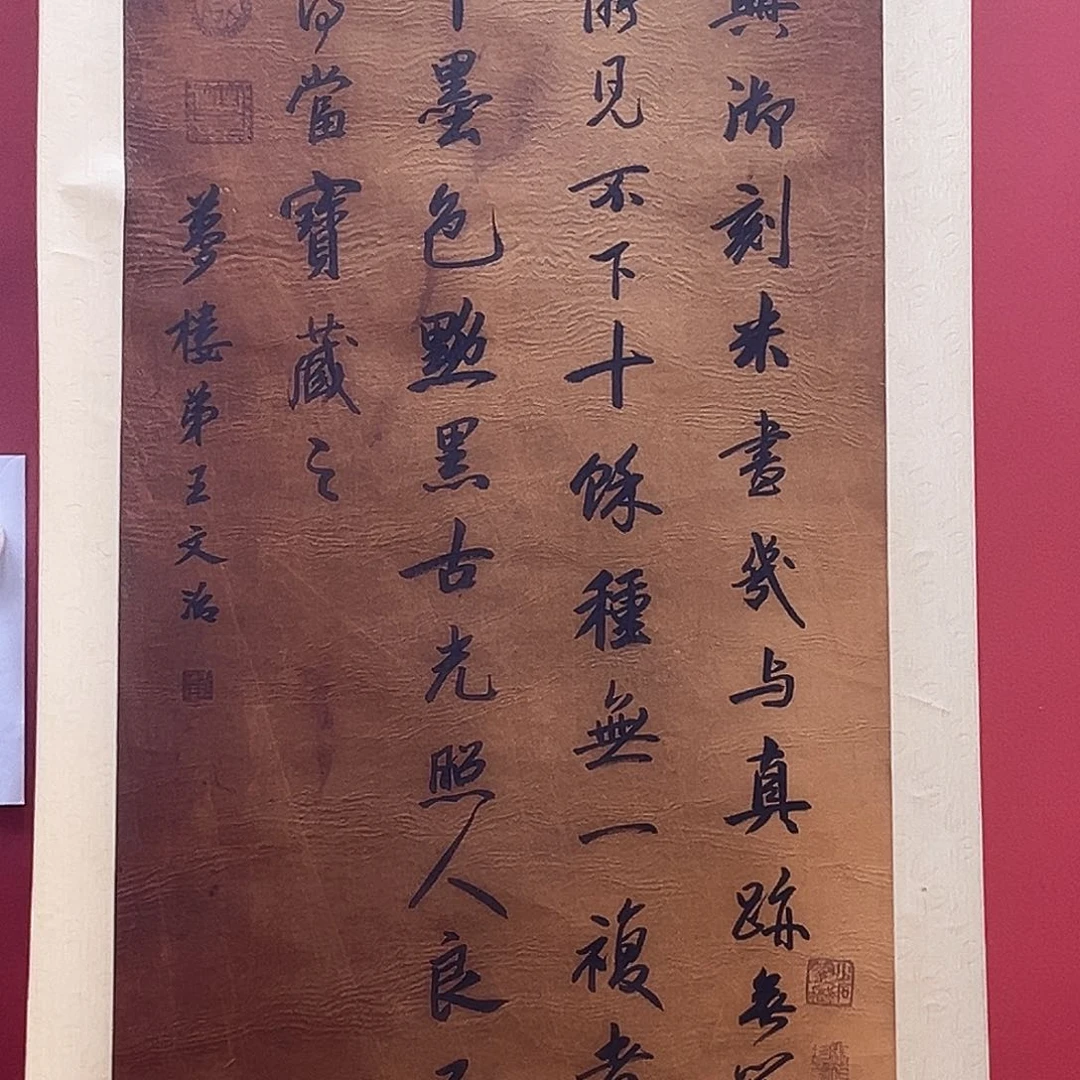 興御刻米書幾与真跡無
所見不下十餘種無一複者
墨色黝黑古光照人良
得當寶藏之
夢樓弟王文治